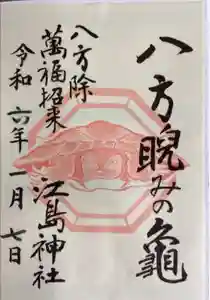 八方睨みの亀
八方除
萬福招来
江島神社
令和六年一月七日